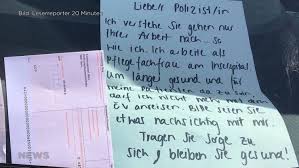 Bild: Leserreporter 20 Minuten
Liebe/r Polizist/in
Ich verstehe Sie gehen nur
Ihrer Arbeit nach.. so
wie ich. Ich arbeite als
Pflegefachfrau am Inselspital
um länge gesund und für
meine Patienten da zu sein
darf ich nicht mehr mit dem
ÖV anreisen. Bitte seien Sie
etwas nachsichtig mit mir.
Tragen Sie Sorge zu
sich, bleiben Sie gesund!
NEWS